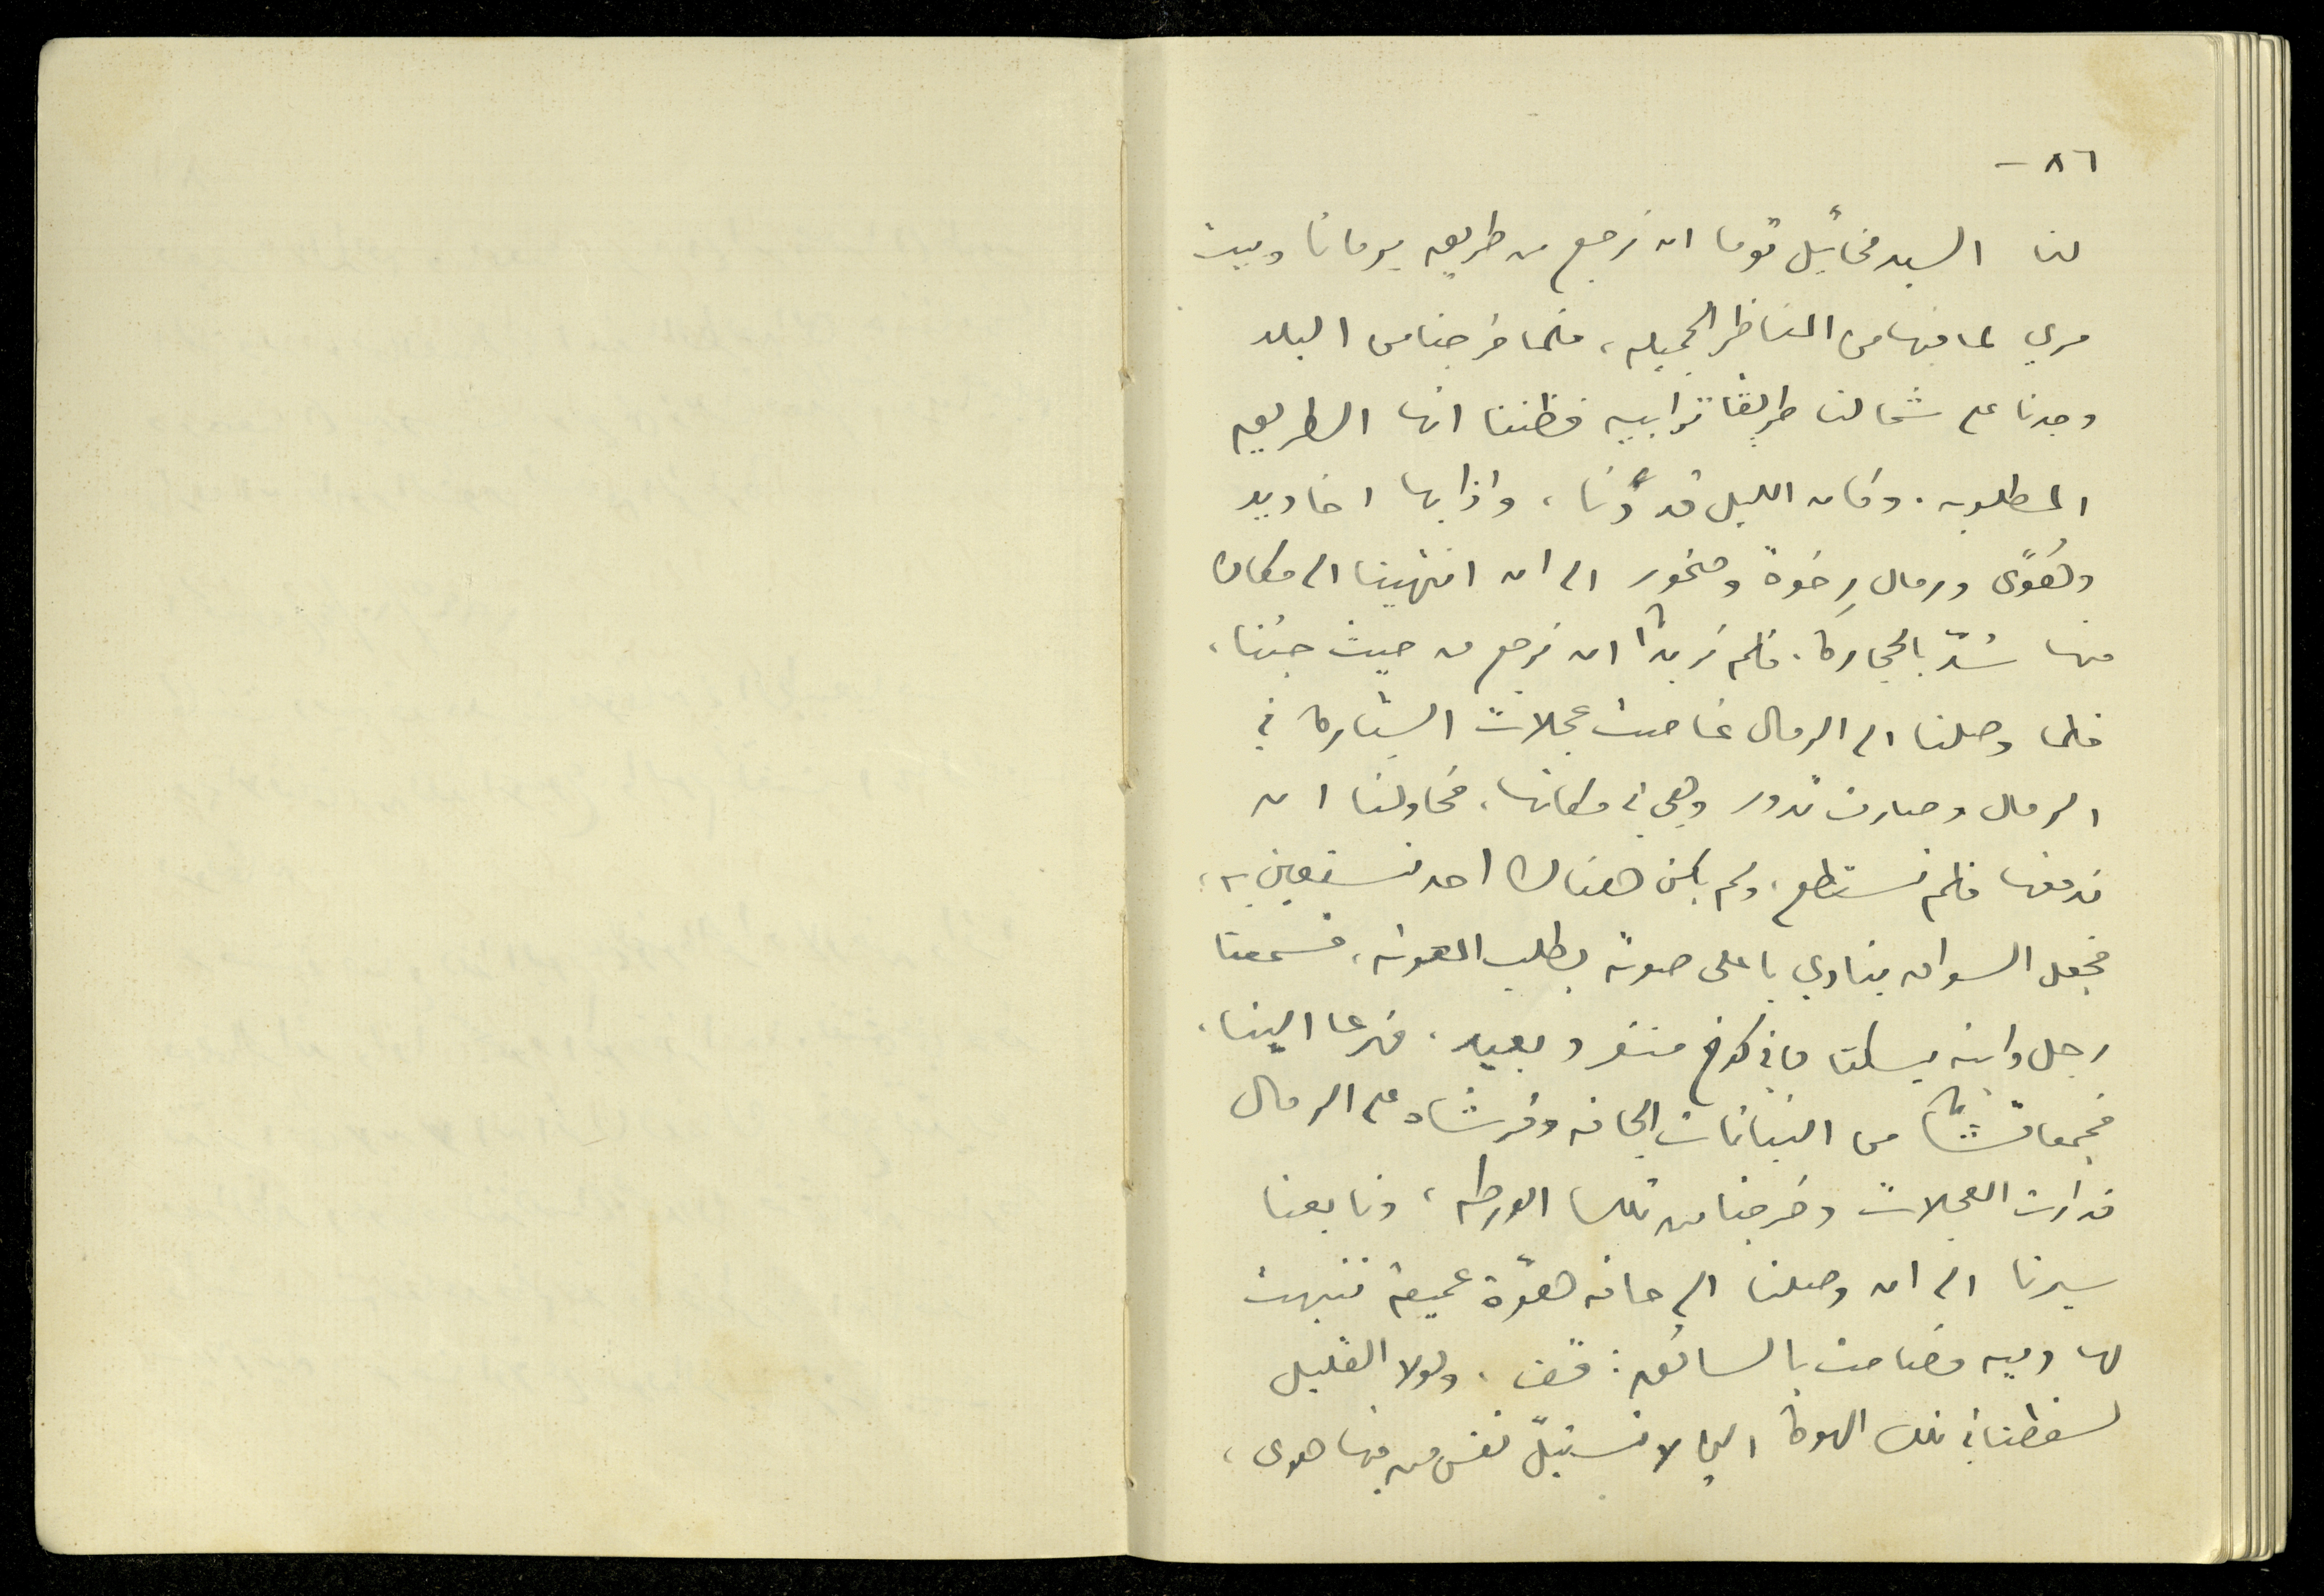 ٨٦ -
لنا السيد مخائيل توما ان نرجع من طريق برمانا وبيت
مري لما فيها من المناظر الجميلة، فلما خرجنا من البلد
وجدنا على شمالنا طريقا ترابية فظننا انها الطريق
المطلوبة. وكان الليل قد دنا، واذا بها اخاديد
وهُوًى ورمال رخوة وصخور الى ان انتهينا الى مكان
منها سُدّ بالحجارة. فلم نر بدًّا ان نرجع من حيث جئنا،
فلما وصلنا الى الرمال غاصت عجلات السيّارة في
الرمال وصارت تدور وهي في مكانها، فحاولنا ان
ندفعها فلم نستطع، ولم يكن هناك احد نستعين به،
فجعل السواق ينادي باعلى صوته يطلب المعونة، فسمعنا
رجل وابنه يسكنان في كوخ منفرد بعيد. فهرعا الينا،
فجمعا قشًّا من النباتات الجافة وفرشاه على الرمال
فدارت العجلات وخرجنا من تلك الورطة، وتابعنا
سيرنا الى ان وصلنا الى حافة هوّة عميقة تنبهت
لها وديه فصاحت بالسائق: قف، ولولا القليل
لسقطنا في تلك الهوة التي لا تستبلّ نفس من فيها هوى،